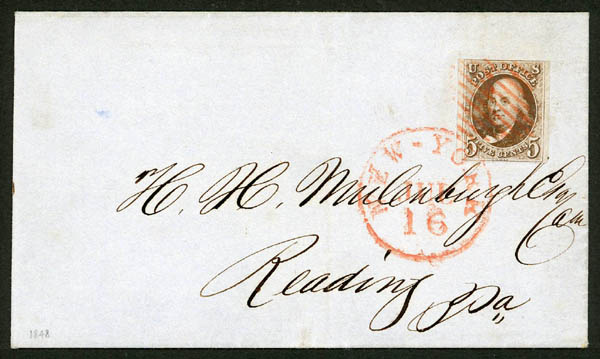 U S
POST OFFICE
5 FIVE CENTS 5
NEW-YORK
16
H. H. Mulenburgh Esq
Reading Pa
1848